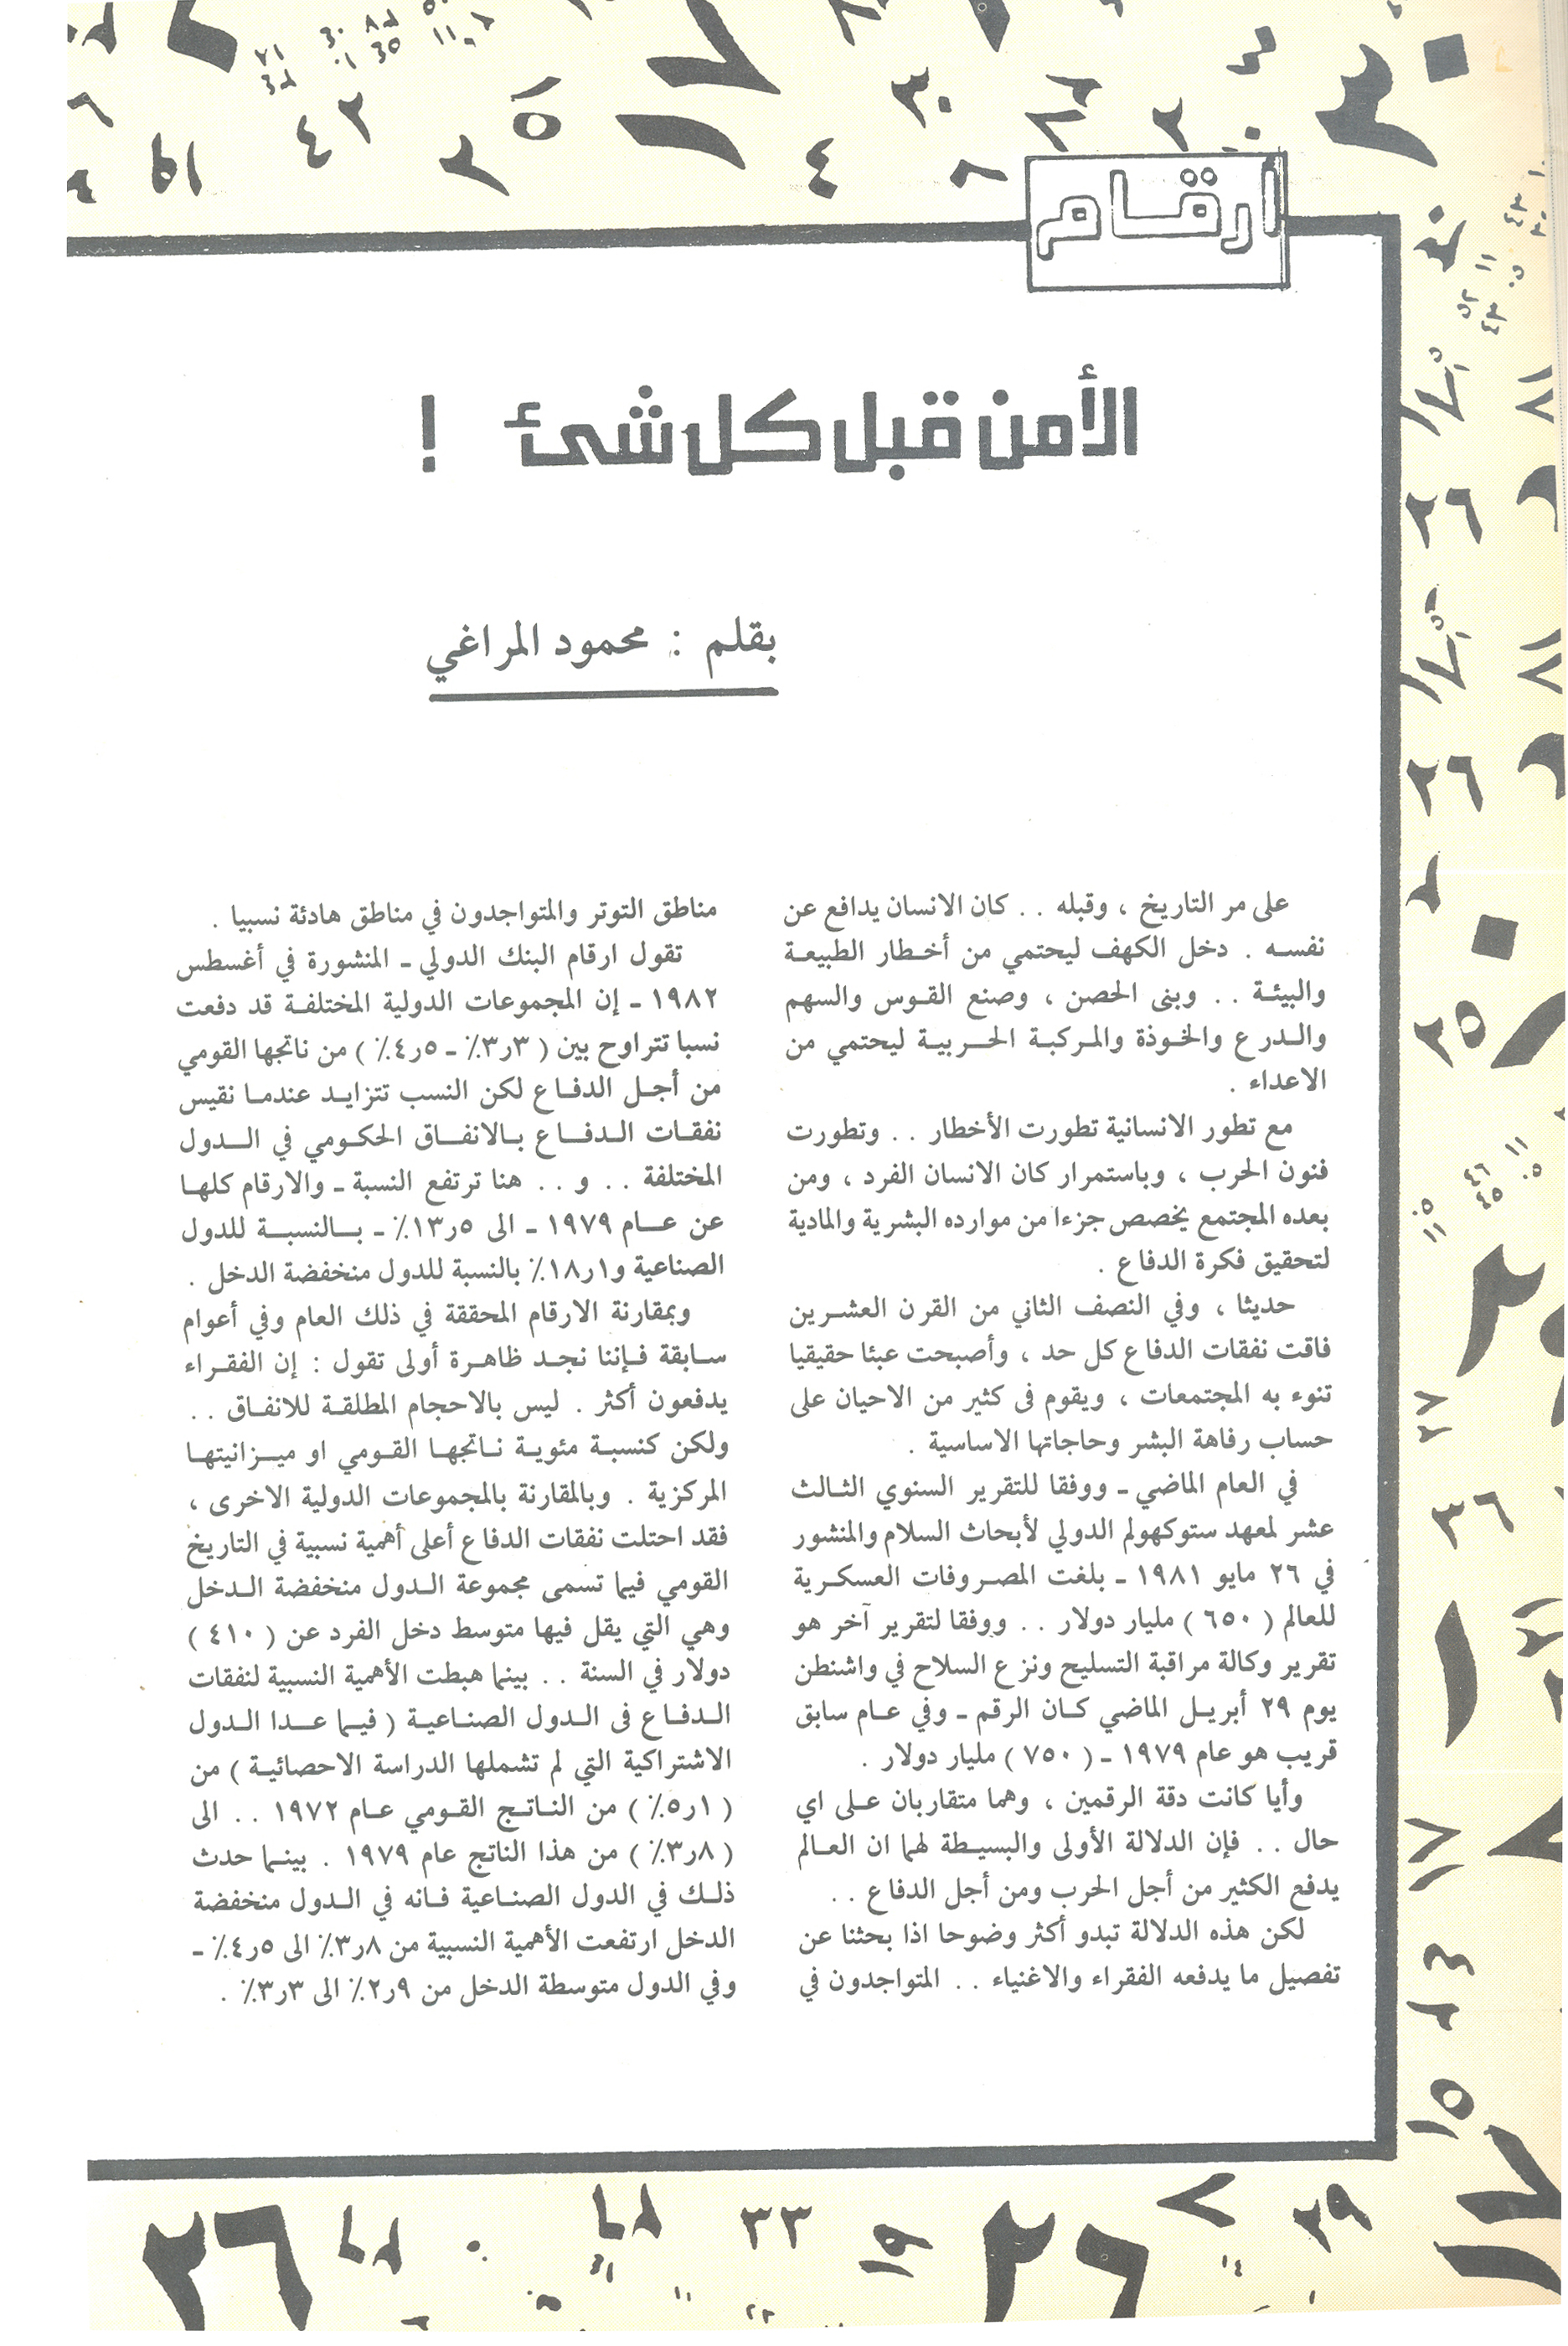 أرقام
الأمن قبل كل شئ !
بقلم : محمود المراغي
على مر التاريخ ، وقبله . . كان الانسان يدافع عن
نفسه . دخل الكهف ليحتمي من أخطار الطبيعة
والبيئة . . وبنى الحصن ، وصنع القوس والسهم
والدرع والخوذة والمركبة الحربية ليحتمي من
الاعداء .
مع تطور الانسانية تطورت الأخطار . . وتطورت
فنون الحرب ، وباستمرار كان الانسان الفرد ، ومن
بعده المجتمع يخصص جزءا من موارده البشرية والمادية
لتحقيق فكرة الدفاع .
حديثا ، وفي النصف الثاني من القرن العشرين
فاقت نفقات الدفاع كل حد ، وأصبحت عبئا حقيقيا
تنوء به المجتمعات ، ويقوم فى كثير من الاحيان على
حساب رفاهة البشر وحاجاتها الاساسية .
في العام الماضي - ووفقا للتقرير السنوي الثالث
عشر لمعهد ستوكهولم الدولي لأبحاث السلام والمنشور
في ٢٦ مايو ١٩٨١ - بلغت المصروفات العسكرية
للعالم ( ٦٥٠ ) مليار دولار . . ووفقا لتقرير آخر هو
تقرير وكالة مراقبة التسليح ونزع السلاح في واشنطن
يوم ٢٩ أبريل الماضي كان الرقم - وفي عام سابق
قريب هو عام ١٩٧٩ - ( ٧٥٠ ) مليار دولار .
وأيا كانت دقة الرقمين ، وهما متقاربان على اي
حال . . فإن الدلالة الأولى والبسيطة لهما ان العالم
يدفع الكثير من أجل الحرب ومن أجل الدفاع . .
لكن هذه الدلالة تبدو أكثر وضوحا اذا بحثنا عن
تفصيل ما يدفعه الفقراء والاغنياء . . المتواجدون في
مناطق التوتر والمتواجدون في مناطق هادئة نسبيا .
تقول ارقام البنك الدولي - المنشورة في أغسطس
١٩٨٢ - إن المجموعات الدولية المختلفة قد دفعت
نسبا تتراوح بين ( ٣ر٣٪ - ٥ر٤٪ ) من ناتجها القومي
من أجل الدفاع لكن النسب تتزايد عندما نقيس
نفقات الدفاع بالانفاق الحكومي في الدول
المختلفة . . و . . هنا ترتفع النسبة - والارقام كلها
عن عام ١٩٧٩ - الى ٥ر١٣٪ - بالنسبة للدول
الصناعية و١ر١٨٪ بالنسبة للدول منخفضة الدخل .
وبمقارنة الارقام المحققة في ذلك العام وفي أعوام
سابقة فإننا نجد ظاهرة أولى تقول : إن الفقراء
يدفعون أكثر . ليس بالاحجام المطلقة للانفاق . .
ولكن كنسبة مئوية ناتجها القومي او ميزانيتها
المركزية . وبالمقارنة بالمجموعات الدولية الاخرى ،
فقد احتلت نفقات الدفاع أعلى أهمية نسبية في التاريخ
القومي فيما تسمى مجموعة الدول منخفضة الدخل
وهي التي يقل فيها متوسط دخل الفرد عن ( ٤١٠ )
دولار في السنة . . بينما هبطت الأهمية النسبية لنفقات
الدفاع فى الدول الصناعية ( فيما عدا الدول
الاشتراكية التي لم تشملها الدراسة الاحصائية ) من
( ١ر٥٪ ) من الناتج القومي عام ١٩٧٢ . . الى
( ٨ر٣٪ ) من هذا الناتج عام ١٩٧٩ . بينما حدث
ذلك في الدول الصناعية فانه في الدول منخفضة
الدخل ارتفعت الأهمية النسبية من ٨ر٣٪ الى ٥ر٤٪ -
وفي الدول متوسطة الدخل من ٩ر٢٪ الى ٣ر٣٪ .